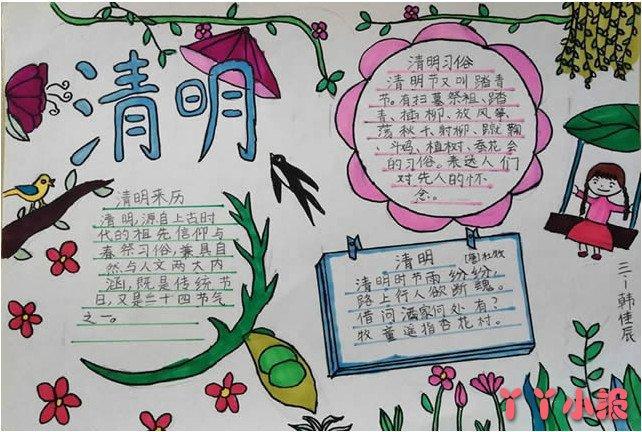 清明
清明习俗
清明节又叫踏青
节。有扫墓祭祖、踏
青、插柳、放风筝、
荡秋千、射柳、蹴鞠
、斗鸡、植树、蚕花会
的习俗。表达人们
对先人的怀
念。
清明来历
清明,源自上古时
代的祖先信仰与
春祭习俗,兼具自
然与人文两大内
涵,既是传统节
日,又是二十四节气
之一。
清明 [唐]杜牧
清明时节雨纷纷,
路上行人欲断魂。
借问酒家何处有?
牧童遥指杏花村。
三一韩佳辰
丫丫小报